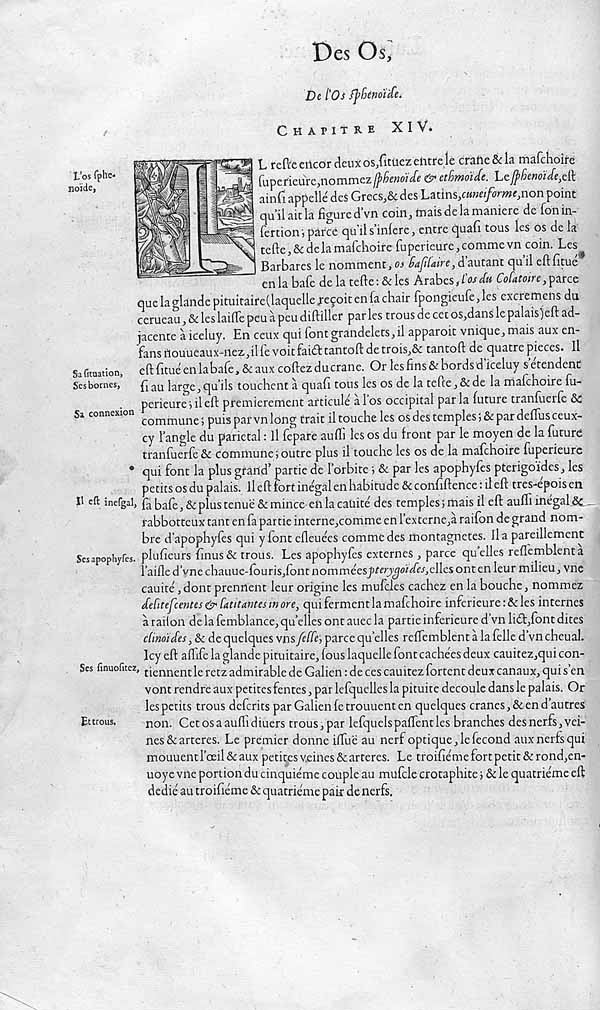 Des Os,
De l'Os sphenoïde.
CHAPITRE XIV.
L'os sphe-
noïde,
IL reste encor deux os, situez entre le crane & la maschoire
superieure, nommez sphenoïde & ethmoïde. Le sphenoïde, est
ainsi appellé des Grecs, & des Latins, cuneiforme, non point
qu'il ait la figure d'vn coin, mais de la maniere de son in-
sertion; parce qu'il s'insere, entre quasi tous les os de la
teste, & de la maschoire superieure, comme vn coin. Les
Barbares le nomment, os basilaire, d'autant qu'il est situé
en la base de la teste: & les Arabes, l'os du Colatoire, parce
que la glande pituitaire (laquelle reçoit en sa chair spongieuse, les excremens du
cerueau, & les laisse peu à peu distiller par les trous de cet os, dans le palais) est ad-
jacente à iceluy. En ceux qui sont grandelets, il apparoit vnique, mais aux en-
fans nouueaux-nez, il se voit faict tantost de trois, & tantost de quatre pieces. Il
Sa situation,
est situé en la base, & aux costez du crane. Or les fins & bords d'iceluy s'étendent
Ses bornes,
si au large, qu'ils touchent à quasi tous les os de la teste, & de la maschoire su-
perieure; il est premierement articulé à l'os occipital par la future transuerse &
Sa connexion
commune; puis par vn long trait il touche les os des temples; & par dessus ceux-
cy l'angle du parietal: Il separe aussi les os du front par le moyen de la future
transuerse & commune; outre plus il touche les os de la maschoire superieure
qui font la plus grand' partie de l'orbite; & par les apophyses pterigoïdes, les
petits os du palais. Il est fort inégal en habitude & consistence: il est tres-épois en
Il est inesgal,
sa base, & plus tenuë & mince en la cauité des temples; mais il est aussi inégal &
rabbotteux tant en sa partie interne, comme en l'externe, à raison de grand nom-
bre d'apophyses qui y sont esleuées comme des montagnetes. Il a pareillement
Ses apophyses.
plusieurs sinus & trous. Les apophyses externes, parce qu'elles ressemblent à
l'aisle d'vne chauue-souris, sont nommées pterygoïdes, elles ont en leur milieu, vne
cauité, dont prennent leur origine les muscles cachez en la bouche, nommez
delitescentes & latitantes in ore, qui ferment la maschoire inferieure: & les internes
à raison de la semblance, qu'elles ont auec la partie inferieure d'vn lict, sont dites
clinoïdes, & de quelques vns selle, parce qu'elles ressemblent à la selle d'vn cheual.
Icy est assise la glande pituitaire, sous laquelle sont cachées deux cauitez, qui con-
Ses sinuositez,
tiennent le retz admirable de Galien: de ces cauitez sortent deux canaux, qui s'en
vont rendre aux petites fentes, par lesquelles la pituite decoule dans le palais. Or
les petits trous descrits par Galien se trouuent en quelques cranes, & en d'autres
Et trous.
non. Cet os a aussi diuers trous, par lesquels passent les branches des nerfs, vei-
nes & arteres. Le premier donne issuë au nerf optique, le second aux nerfs qui
mouuent l'œil & aux petites veines & arteres. Le troisiéme fort petit & rond, en-
uoye vne portion du cinquiéme couple au muscle crotaphite; & le quatriéme est
dedié au troisiéme & quatriéme pair de nerfs.